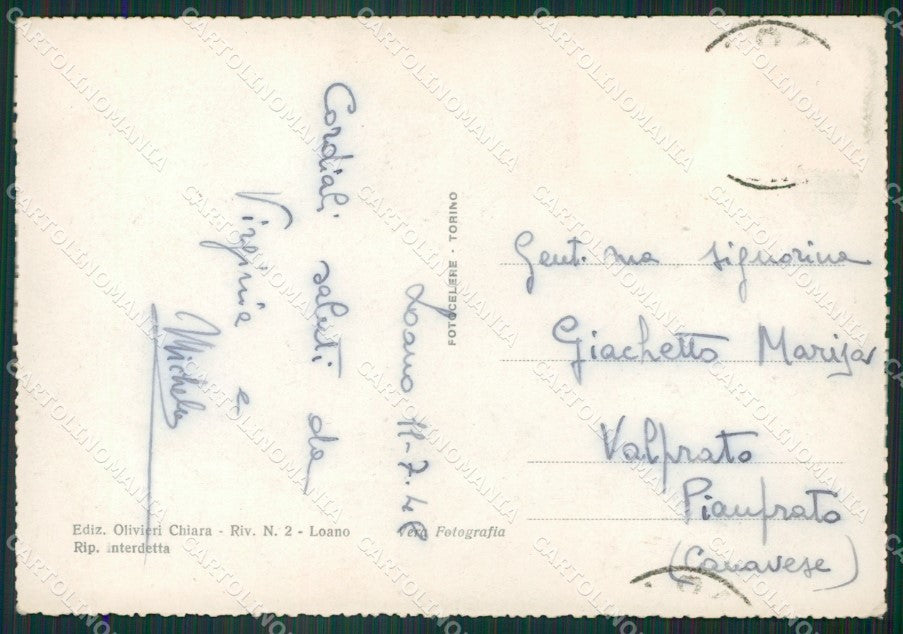 Loano 11-7.48
Cordiali saluti da
Virginia e
Michela
FOTOCELERE - TORINO
Gent.ma signorina
Giachetto Marisa
Valprato
Pianprato
(Canavese)
Ediz. Olivieri Chiara - Riv. N. 2 - Loano
Rip. interdetta
Vera Fotografia
CARTOLINOMANIA